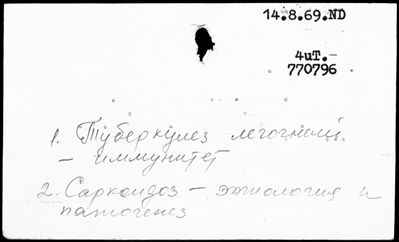 14.8.69.ND
4иТ.-
770796
1. Туберкулез легочный.
- иммунитет
2. Саркоидоз - этиология и
патогенез